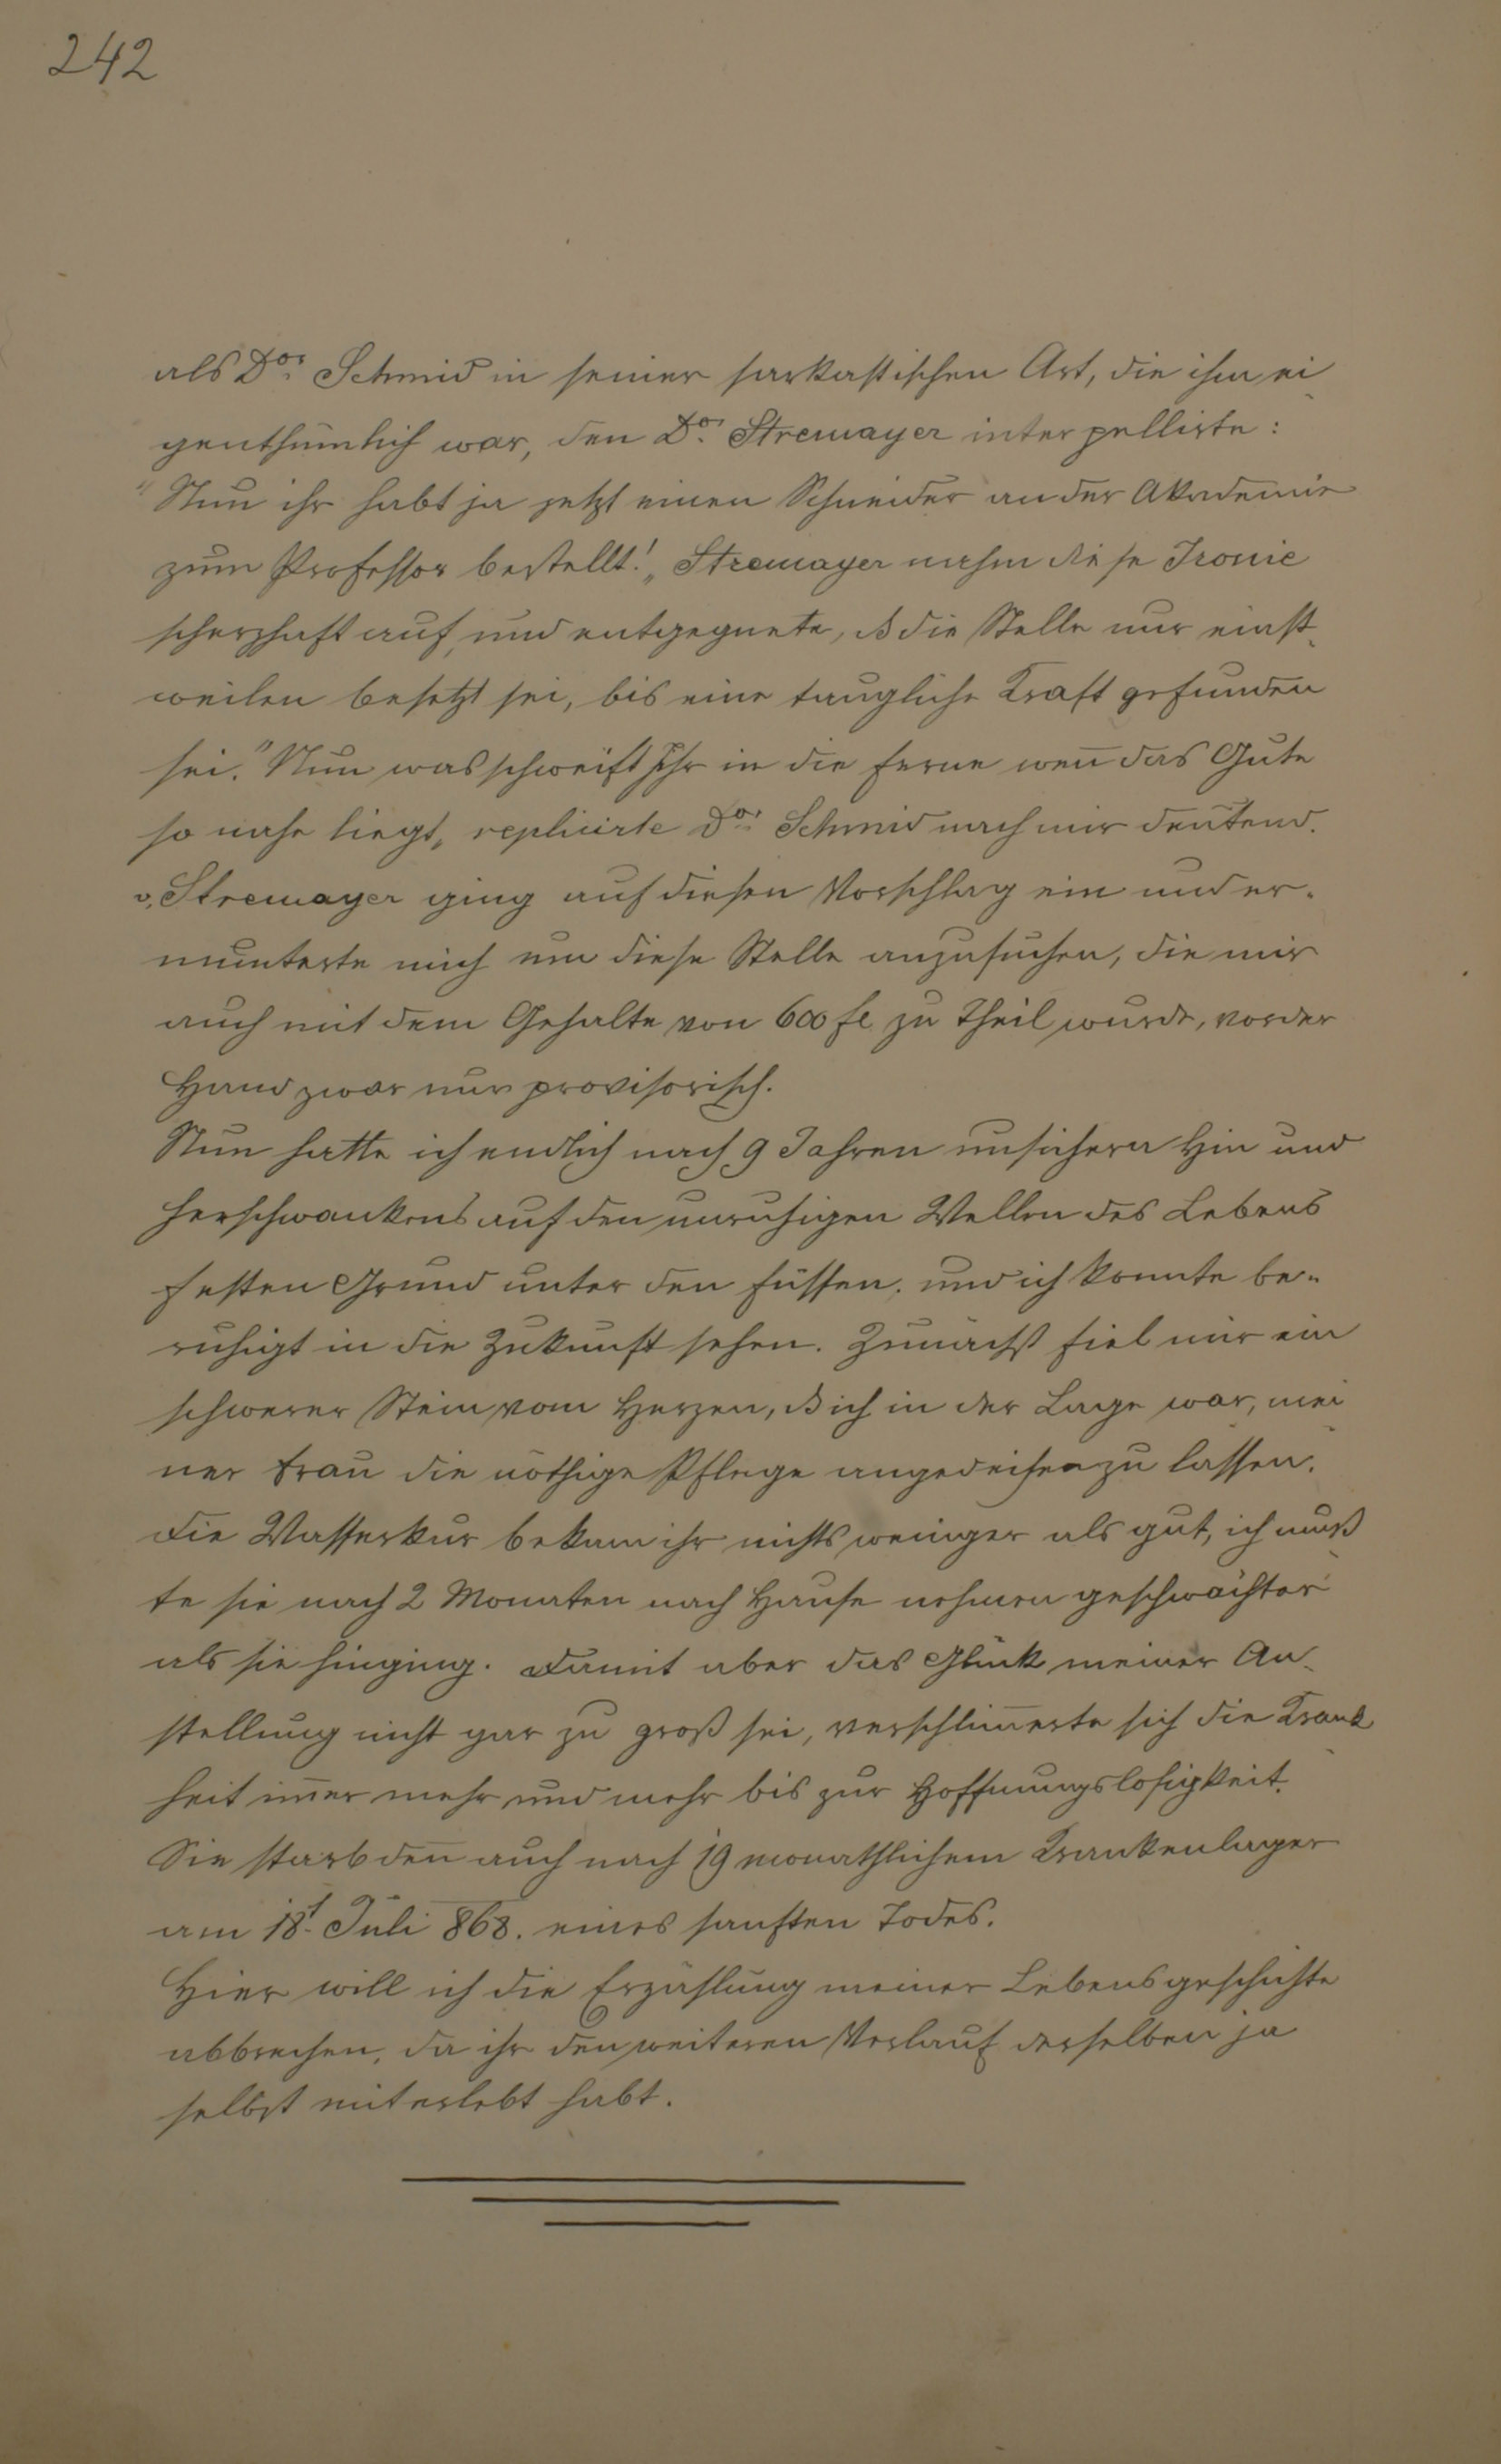 242
als Dor. Schmid in seiner sarkastischen Art, die ihm ei
genthümlich war, den Dor. Stremayer interpellirte:
"Nun ihr habt ja jetzt einen Schneider an der Akademie
zum Professor bestellt!„ Stremayer nahm diese Ironie
scherzhaft auf, und entgegnete, ß die Stelle nur einst-
weilen besetzt sei, bis eine taugliche Kraft gefunden
sei." Nun was schweift Ihr in die Ferne weñ das Gute
so nahe liegt„ replicirte Dor. Schmid nach mir deutend.
v. Stremayer ging auf diesen Vorschlag ein und er-
munterte mich um diese Stelle anzusuchen, die mir
auch mit dem Gehalte von 600 fl zu Theil wurde, vorder
Hand zwar nur provisorisch.
Nun hatte ich endlich nach 9 Jahren unsichern Hin und
herschwankens auf den unruhigen Wellen des Lebens
festen Grund unter den Füssen, und ich konnte be-
ruhigt in die Zukunft sehen. Zunächst fiel mir ein
schwerer Stein vom Herzen, ß ich in der Lage war, mei
ner Frau die nöthige Pflege angedeihen zu lassen.
Die Wasserkur bekam ihr nichts weniger als gut, ich muß
te sie nach 2 Monaten nach Hause nehmen geschwächter
als sie hinging. Damit aber das Glück meiner An-
stellung nicht gar zu groß sei, verschlim̄erte sich die Krank
heit im̄er mehr und mehr bis zur Hoffnungslosigkeit.
Sie starb deñ auch nach 19 monathlichem Krankenlager
am 18t. Juli 868. eines sanften Todes.
Hier will ich die Erzählung meiner Lebensgeschichte
abbrechen, da ihr den weiteren Verlauf derselben ja
selbst miterlebt habt.